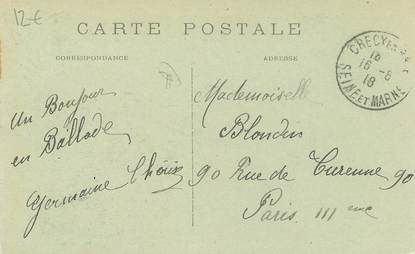 12€
CARTE POSTALE
CORRESPONDANCE
ADRESSE
CRECY EN
16
16 - 6
18
SEINE ET MARNE
Un Bonjour
en Ballade
Germaine
Mademoiselle
Blondin
90 Rue de Turenne 90
Paris. III me